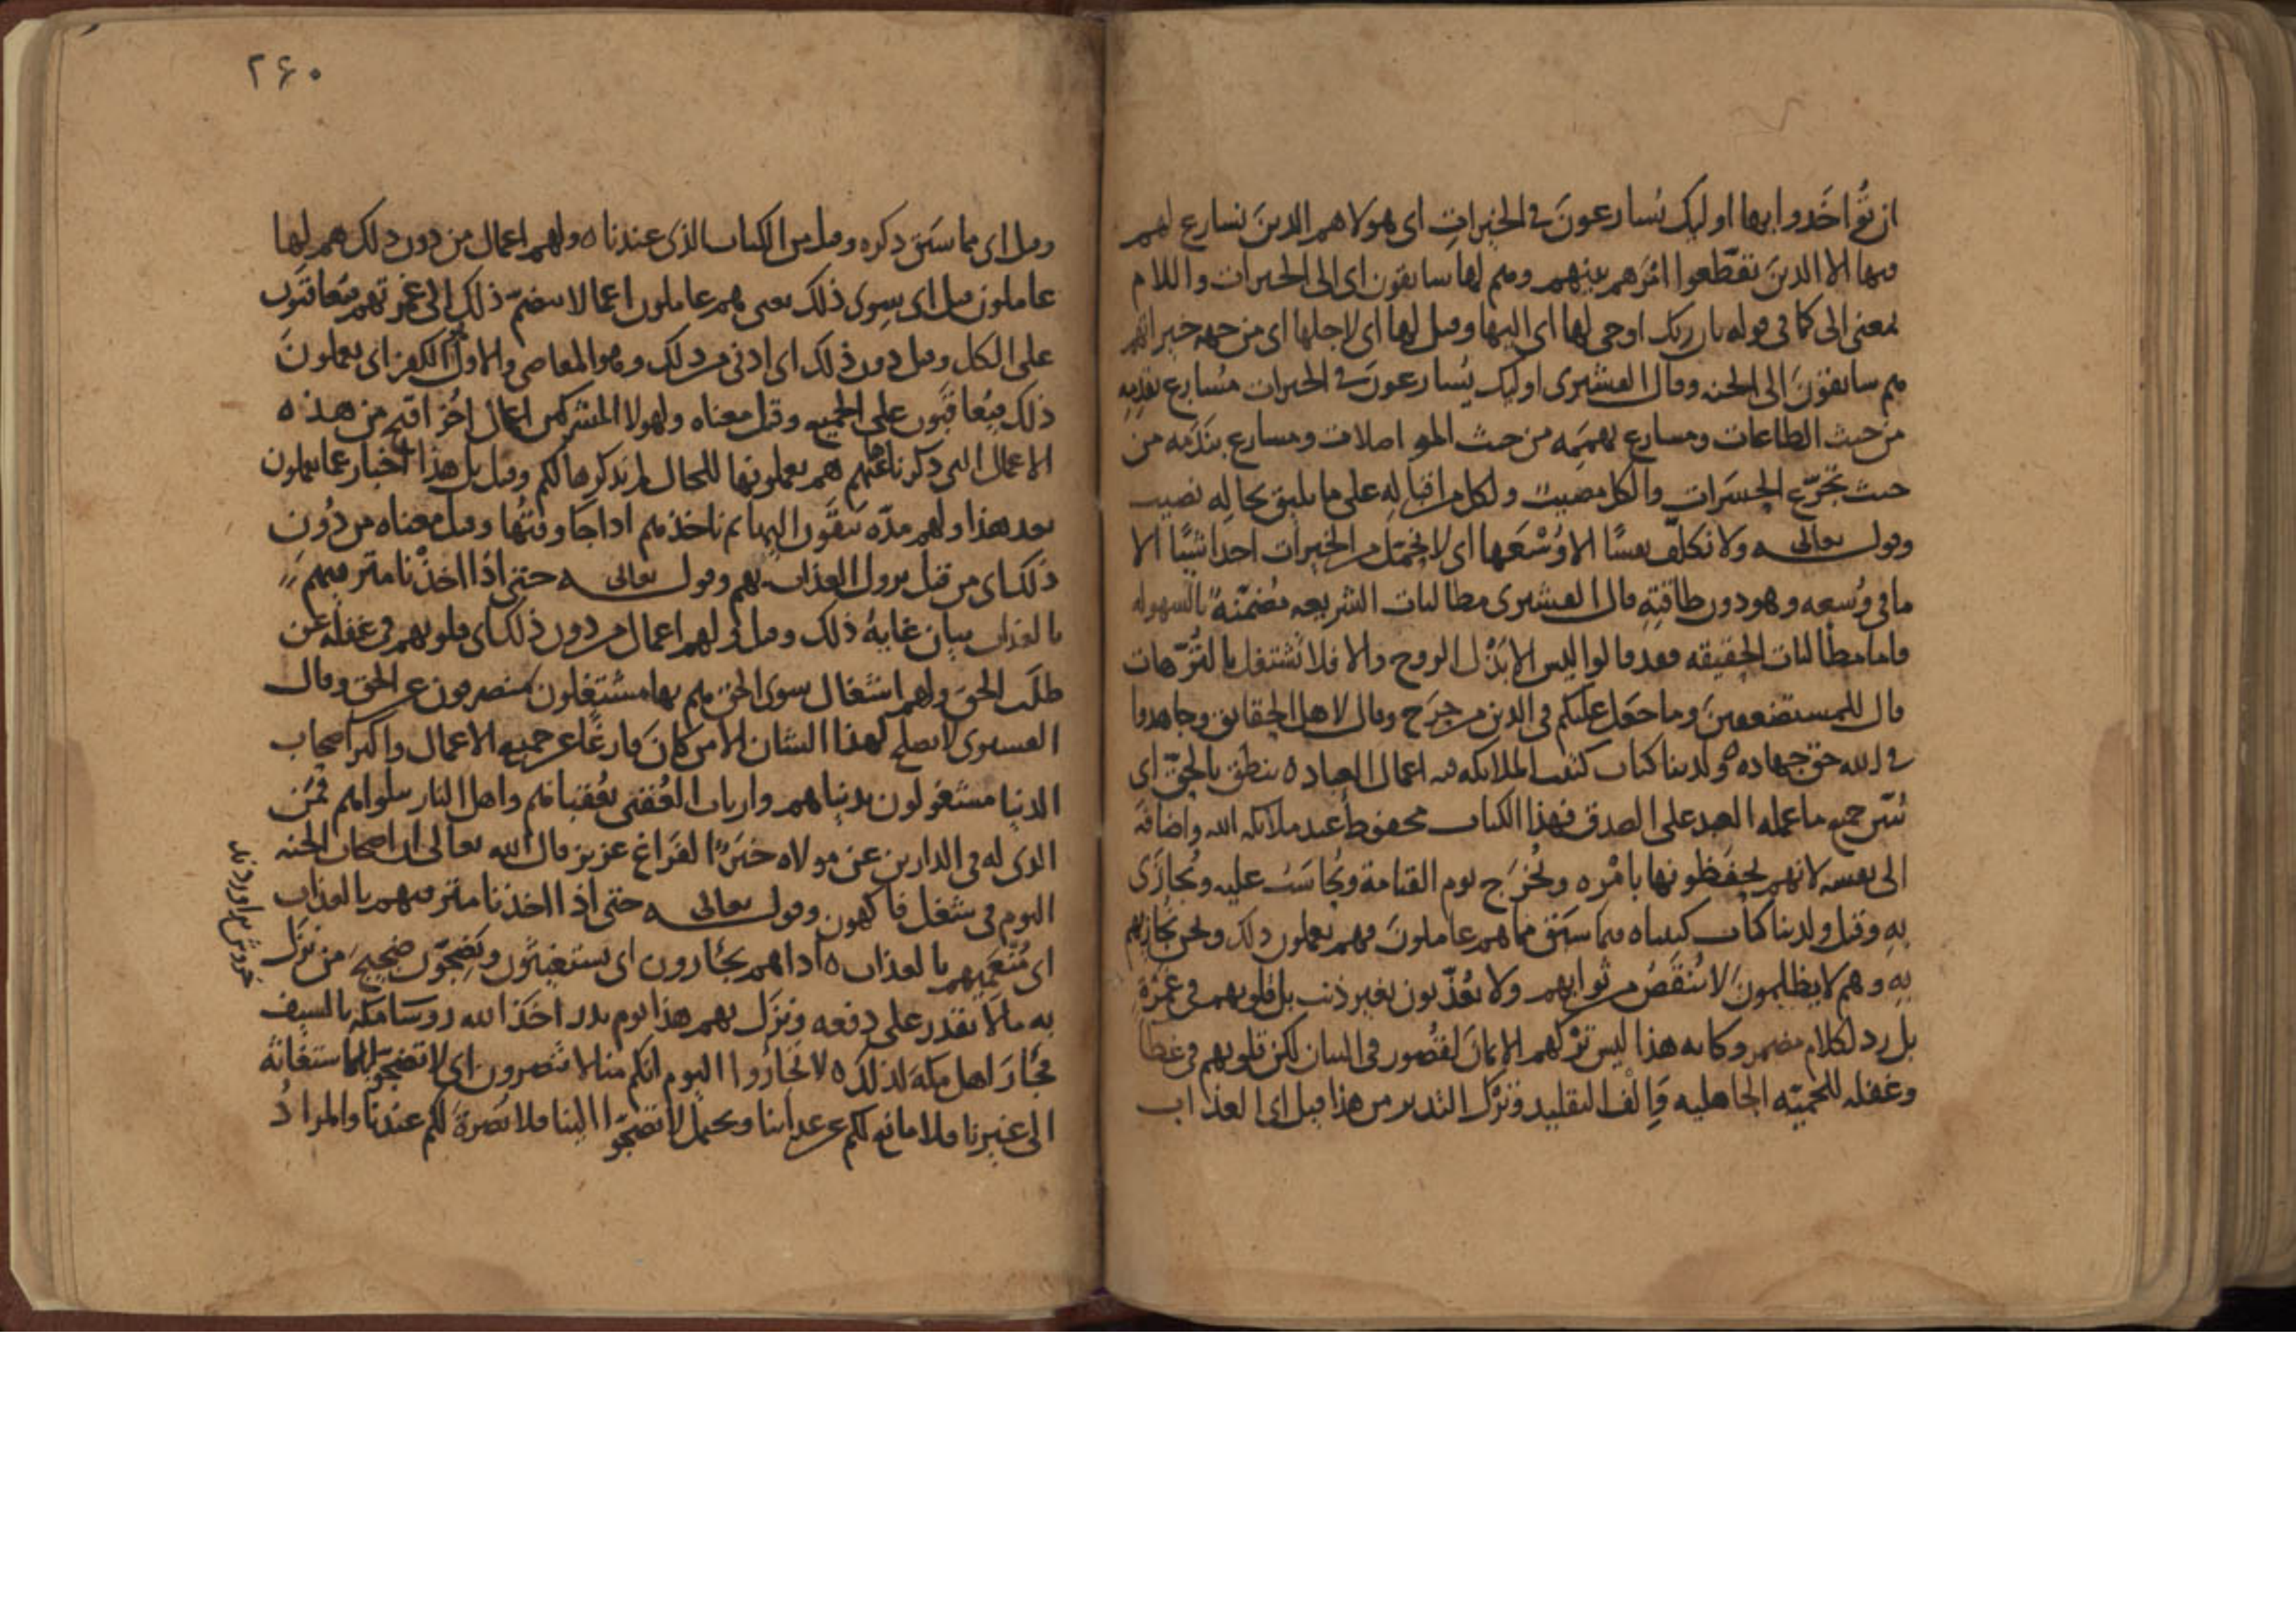 ان تؤاخذوا بها اوليك يسارعون في الخيرات اى هولا هم الذين نسارع لهم
فيها لا الذين تقطعوا امرهم بينهم وهم لها سابقون اى الى الخيرات واللام
بمعنى الى كما في قوله بان ربك اوحى لها اى اليها وقيل لها اى لاجلها اى من جهه خيراتهم
هم سابقون الى الجنه وقال القشيرى اوليك يسارعون في الخيرات مسارع بقدمه
من حيث الطاعات ومسارع بهممه من حيث المواصلات ومسارع بندمه من
حيث تجرع الحسرات والكل مصيب ولكل من اقباله على ما يليق بحاله نصيب
وقوله تعالى ولا نكلف نفسًا الا وسعها اى لا نحمل من الخيرات احدا شيًا الا
ما في وسعه وهو دون طاقته قال القشيرى مطالبات الشريعه مضمنة بالسهوله
واما مطالبات الحقيقه فقد قالوا ليس الا بذل الروح والا فلا تشتغل بالترهات
قال للمستضعفين وما جعل عليكم في الدين من حرج وقال لاهل الحقايق وجاهدوا
في الله حق جهاده ه ولدينا كتاب كتب الملايكه فيه اعمال العباد ه ينطق بالحق اى
يبين جميع ما عمله العبد على الصدق فهذا الكتاب محفوظ عند ملايكه الله واضافه
الى نفسه لانهم يحفظونها بامره ويخرج يوم القيامة ويحاسب عليه ويجازى
به وقيل ولدينا كتاب كتبناه فيما سبق مما هم عاملون فهم يعملون ذلك ونحن نجازيهم
به وهم لا يظلمون لا ينقص من ثوابهم ولا يعذبون بغير ذنب بل قلوبهم في غمرة
بل رد لكلام مضمر وكانه هذا ليس تركهم الايمان لقصور في البيان لكن قلوبهم في غطا
وغفله للحميّه الجاهليه والف التقليد وترك التدبر من هذا قيل اى العذاب
وقيل اى مما سبق ذكره وقيل من الكتاب الذى عندنا ه ولهم اعمال من دون ذلك هم لها
عاملون قيل اى سوى ذلك يعنى هم عاملون اعمالا ينضم ذلك الى غمرتهم فيعاقبون
على الكل وقيل دون ذلك اى ادنى من ذلك وهو المعاصى والاول الكفر اى يعملون
ذلك فيعاقبون على الجميع وقيل معناه ولهولا المشركين اعمال اخر اقبح من هذه
الاعمال التى ذكرناها عنهم هم يعملونها للحال لم نذكرها لكم وقيل بل هذا اخبار عما يعملون
بعد هذا ولهم مدّه يبقون اليها ثم ناخذهم اذا جا وقتها وقيل معناه من دون
ذلك اى من قبل نزول العذاب بهم وقوله تعالى حتى اذا اخذنا مترفيهم
بالعذاب بيان غاية ذلك وقيل ولهم اعمال من دون ذلك اى قلوبهم في غفله عن
طلب الحق ولهم اشغال سوى الحق هم بها مشتغلون منصرفون عن الحق وقال
القشيرى لا يصلح لهذا الشان الا من كان فارغا عن جميع الاعمال واكثر اصحاب
الدنيا مشغولون بدنياهم وارباب العقبى بعقباهم واهل النار ببلواهم فمن
الذى له في الدارين عن مولاه خبر الفراغ عزيز قال الله تعالى ان اصحاب الجنه
اليوم في شغل فاكهون وقوله تعالى حتى اذا اخذنا مترفيهم بالعذاب
اى متنعميهم بالعذاب ه اذا هم يجئارون اى يستغيثون ويضجون ضجيج من نزل
به ما لا يقدر على دفعه ونزل بهم هذا يوم بدر اخذ الله روسا مكه بالسيف
فجار اهل مكة لذلك ه لا تجاروا اليوم انكم منا لا تنصرون اى لا تضجوا استغاثة
الى غيرنا فلا مانع لكم عن عذابنا ويحتمل لا تضجوا الينا فلا نصرة لكم عندنا والمراد
خروش براوردند
۲۶۰